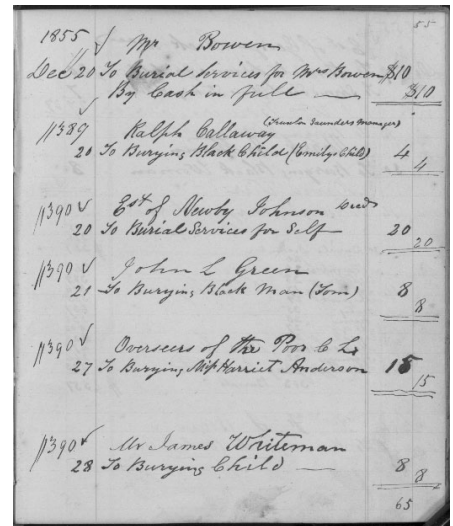 55
1855 ✓ Mr Bowen
Dec 20 To Burial Services for Mrs Bowen $10
By Cash in full — $10
11389 Ralph Callaway (Saunders Manager)
20 To Burying Black Child (Emily's Child) 4
4
11390 ✓ Est of Newby Johnson Decd
20 To Burial Services for Self 20
20
11390 ✓ John L Green
21 To Burying Black Man (Tom) 8
8
11390 ✓ Overseers of the Poor C L
27 To Burying Harriet Anderson 15
15
11390 ✓ Mr James Writeman
28 To Burying Child — 8
8
65